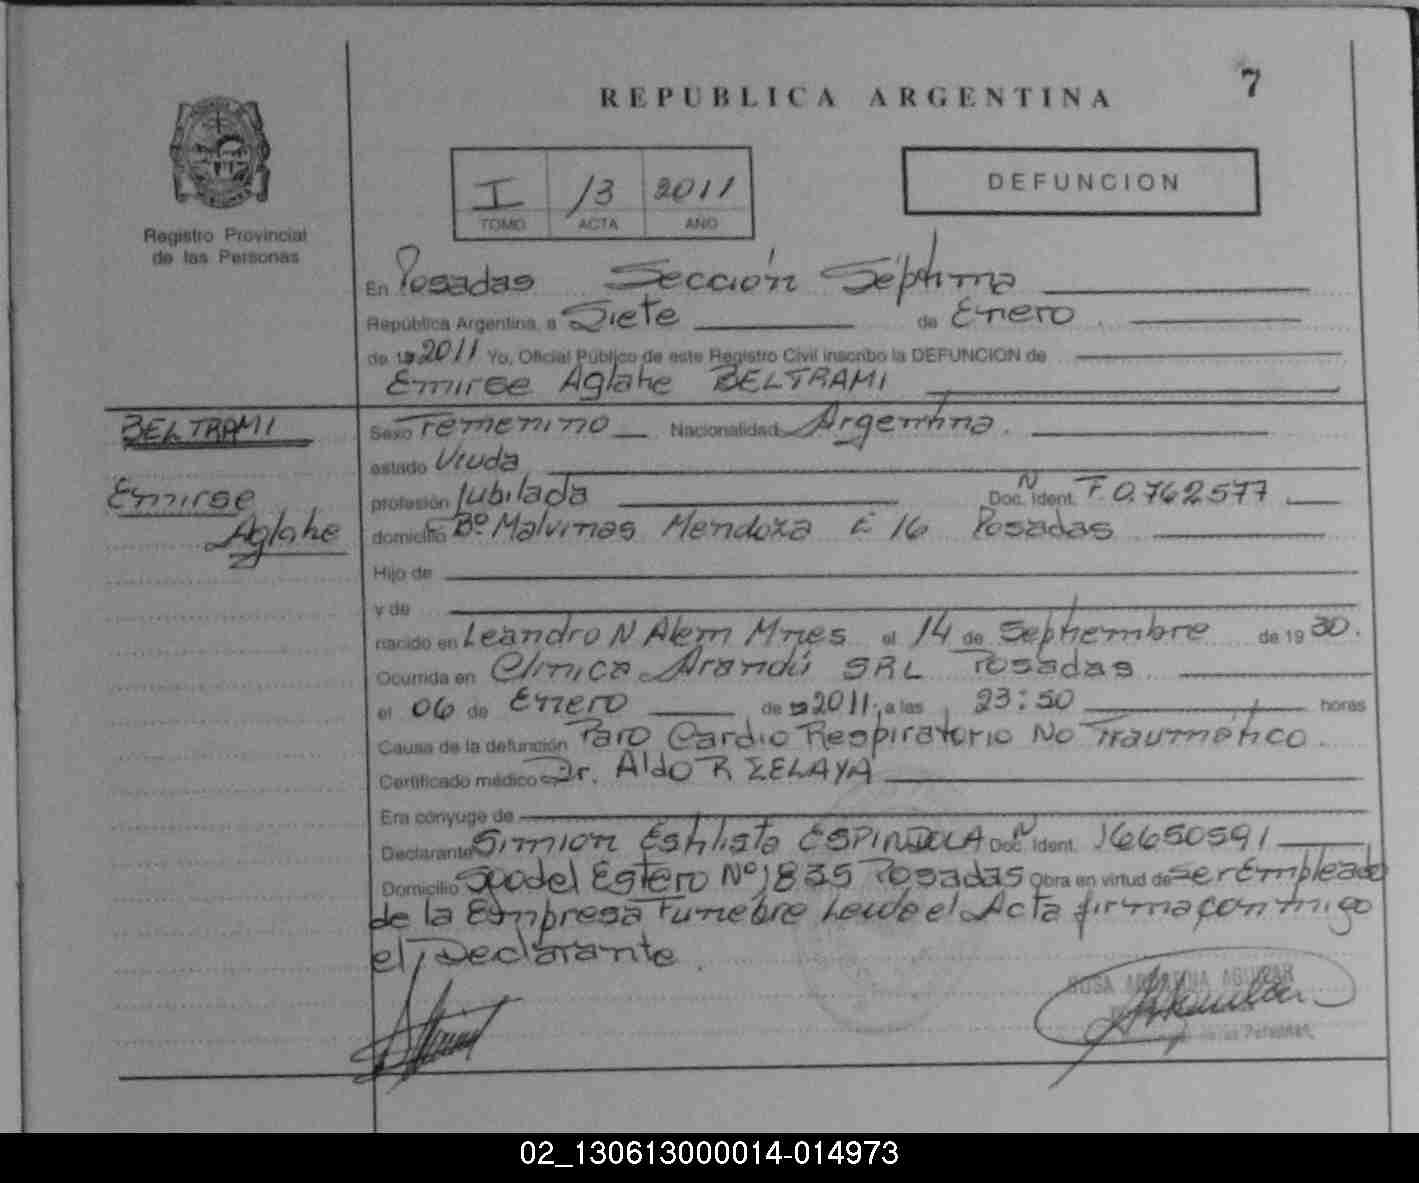 7
REPUBLICA ARGENTINA
Registro Provincial
de las Personas
I 13 2011
TOMO ACTA AÑO
DEFUNCION
En Posadas Sección Séptima
República Argentina, a Siete de Enero
de 19 2011 Yo, Oficial Público de este Registro Civil inscribo la DEFUNCION de
Emirse Aglahe BELTRAMI
BELTRAMI
Emirse
Aglahe
Sexo Femenino Nacionalidad Argentina.
estado Viuda
profesión Jubilada Doc. Ident. N F 0.762577
domicilio Bº Malvinas Mendoza C 16 Posadas
Hijo de
y de
nacido en Leandro N Alem Mnes el 14 de Septiembre de 19 30.
Ocurrida en Clínica Arandú SRL Posadas
el 06 de Enero de 19 2011, a las 23:50 horas
Causa de la defunción Paro Cardio Respiratorio No Traumático.
Certificado médico Dr. Aldo R ZELAYA
Era cónyuge de
Declarante Simion Estilisto ESPINDOLA Doc. Ident. N 16650591
Domicilio Sgo del Estero Nº 1835 Posadas Obra en virtud de ser Empleado
de la Empresa Funebre Leida el Acta firma conmigo
el Declarante.
ROSA AGUILAR
de las Personas
02_130613000014-014973